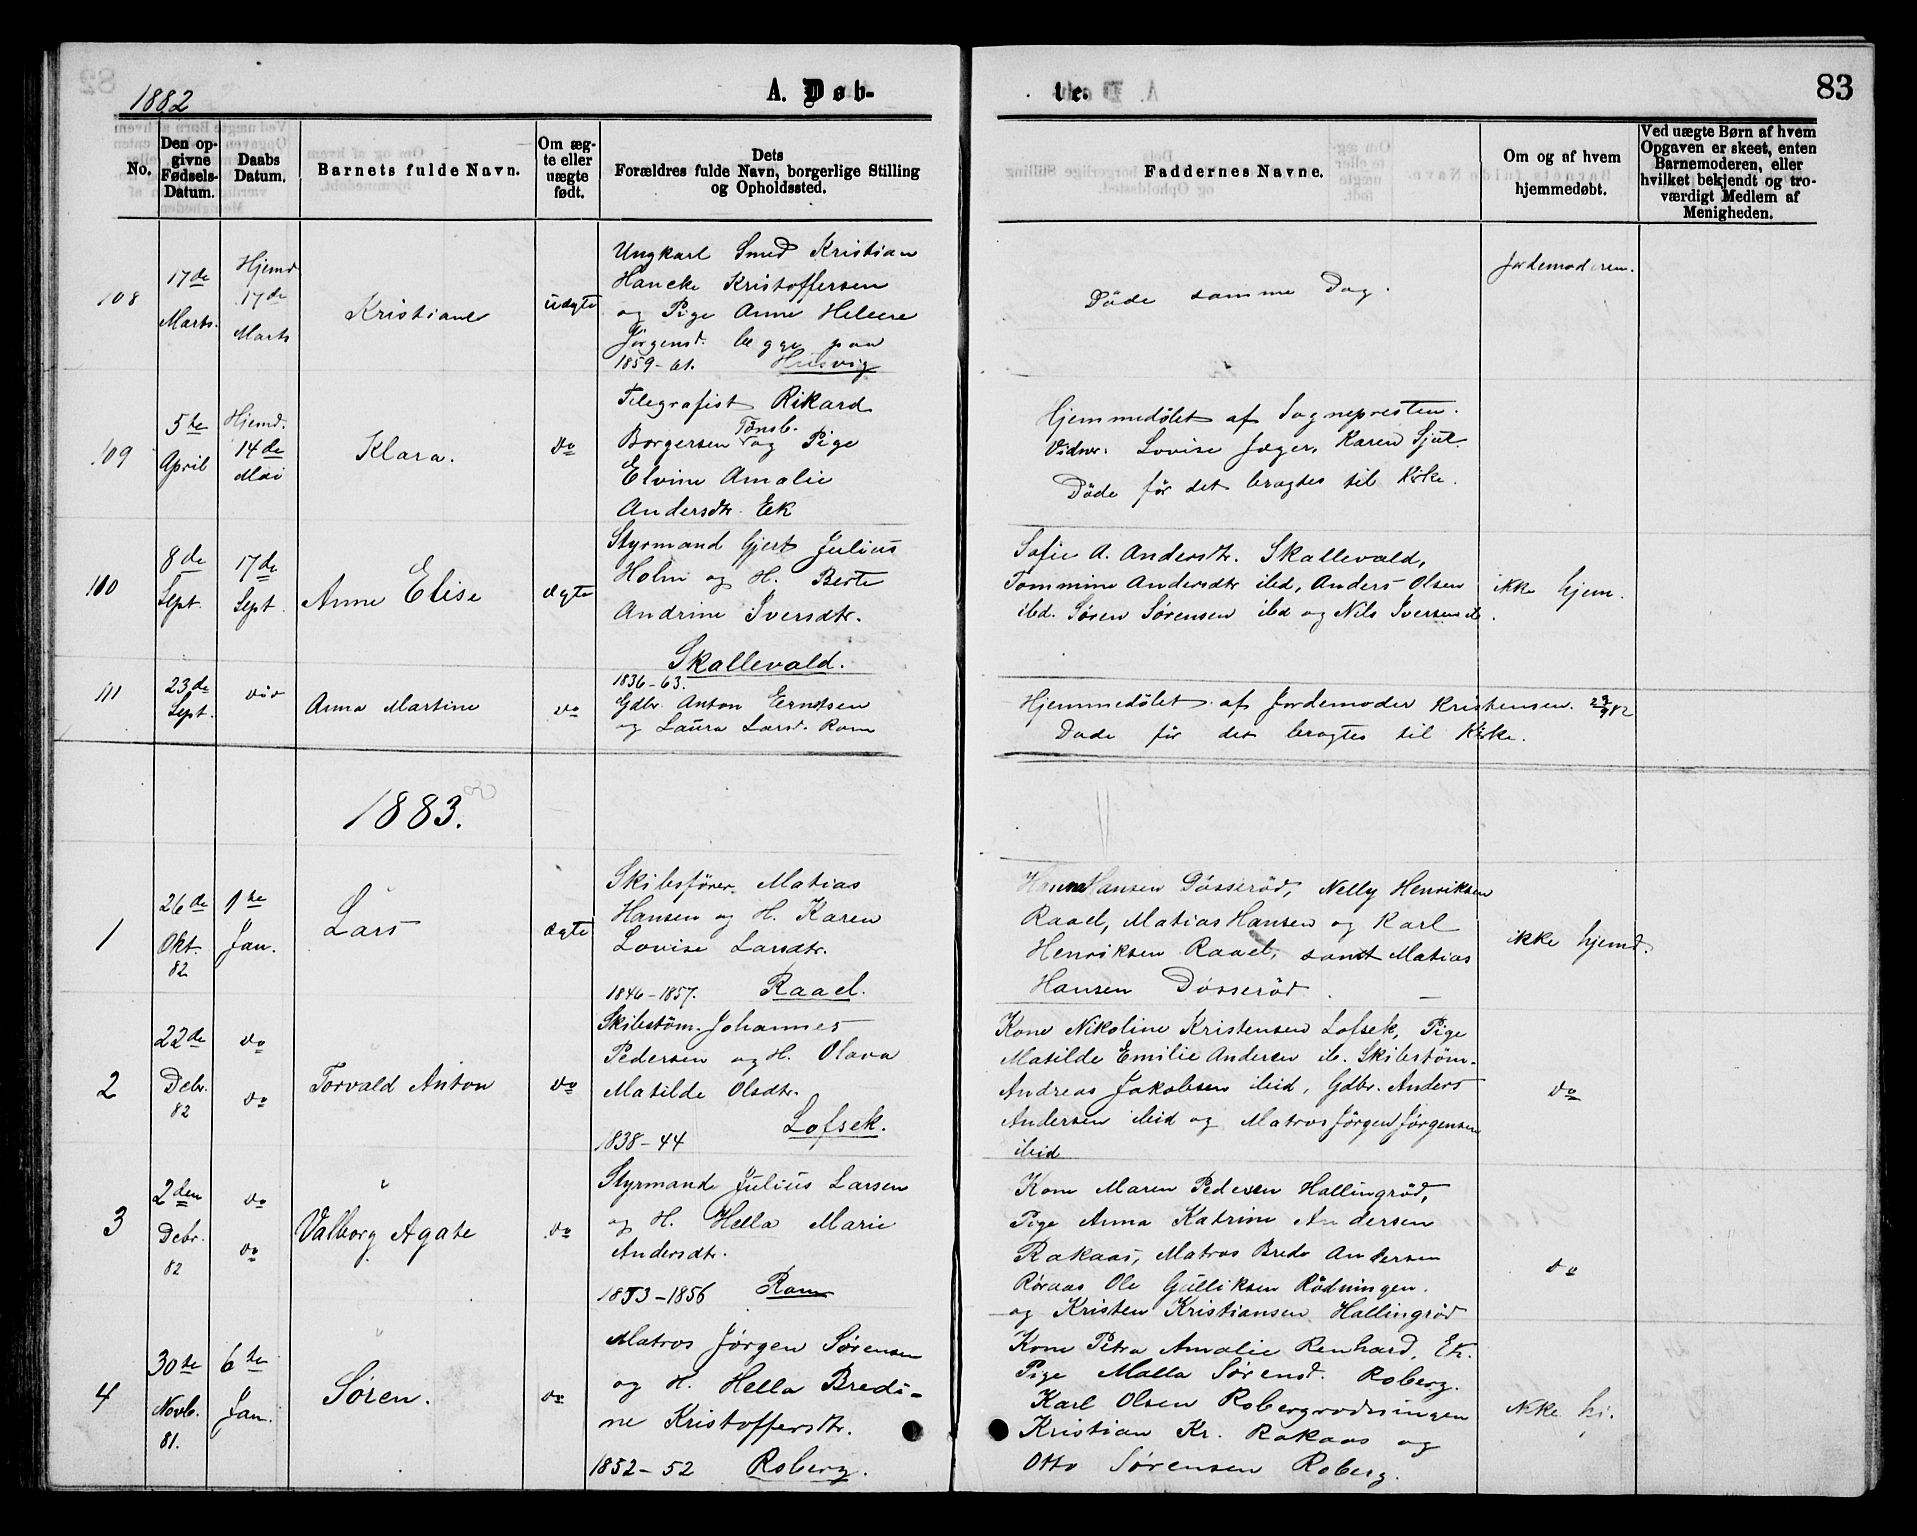 1882
A. Døb-
te.
83
No.
Den op-
givne
Fødsels-
Datum.
Daabs
Datum.
Barnets fulde Navn.
Om æg-
te eller
uægte
født.
Dets
Forældres fulde Navn, borgerlige Stilling
og Opholdssted.
Faddernes Navne.
Om og af hvem
hjemmedøbt.
Ved uægte Børn af hvem
Opgaven er skeet, enten
Barnemoderen, eller
hvilket bekjendt og tro-
værdigt Medlem af
Menigheden.
108
17de
Marts
Hjemd
17de
Marts
Kristiane
uægte
Ungkarl Smed Kristian
Hancke Kristoffersen
og Pige Anne Helene
Jørgensd. begge paa
1859-61. Husvig
Døde samme Dag.
Jordemoderen.
109
5te
April
Hjemd.
14de
Mai
Klara.
do
Telegrafist Rikard
Borgersen Tønsb. og Pige
Elvine Amalie
Andersdtr. Ek
Hjemmedøbt af Sognepresten.
Vidner: Lovise Jæger, Karen
Døde før det bragtes til Kirke.
110
8de
Sept.
17de
Sept.
Anne Elise
ægte
Styrmand Gjert Julius
Holm og H. Berte
Andrine Iversdtr.
Skallevald.
1836-63.
Sofie A. Andersdtr. Skallevald,
Tommine Andersdtr ibd, Anders Olsen
ibd. Søren Sørensen ibd og Nils Iversen ib.
ikke hjem.
111
23de
Sept.
Anna Martine
do
Gdbr. Anton Erntsen
og Laura Larsd. Ram
Hjemmedøbt af Jordemoder Kristensen. 23/9 82
Døde før det bragtes til Kirke.
1883.
1
26de
Okt.
82
1ste
Jan.
Lars
ægte
Skibsfører. Matias
Hansen og H. Karen
Lovise Larsdtr.
1846-1857. Raael.
Hanna Hansen Døsserød, Nelly Henriksen
Raael, Matias Hansen og Karl
Henriksen Raael, samt Matias
Hansen Døsserød.
ikke hjemd.
2
22de
Debr.
82
do
do
Torvald Anton
do
Skibstøm. Johannes
Pedersen og H. Olava
Matilde Olsdtr.
1838-44 Lofsek.
Kone Nikoline Kristensen Lofsek, Pige
Matilde Emilie Andersen ib. Skibstøm.
Andreas Jakobsen ibid, Gdbr. Anders
Andersen ibid og Matros Jørgen Jørgensen
ibid
do
3
2den
Debr.
82
do
do
Valborg Agate
do
Styrmand Julius Larsen
og H. Hella Marie
Andersdtr.
1853-1856 Ram
Kone Maren Pedersen Hallingrød,
Pige Anna Katrine Andersen
Rakaas, Matros Brede Andersen
Røraas Ole Gulliksen Rødningen.
og Kristen Kristiansen Hallingrød
do
4
30te
Novb.
81.
6te
Jan.
Søren.
do
Matros Jørgen Sørensen
og H. Hella Bredi-
ne Kristoffersdtr.
1852-52 Roberg.
Kone Petra Amalie Renhard, Ek.
Pige Malla Sørensd. Roberg.
Karl Olsen Robergrødningen
Kristian Kr. Rakaas og
Otto Sørensen Roberg.
ikke hj.